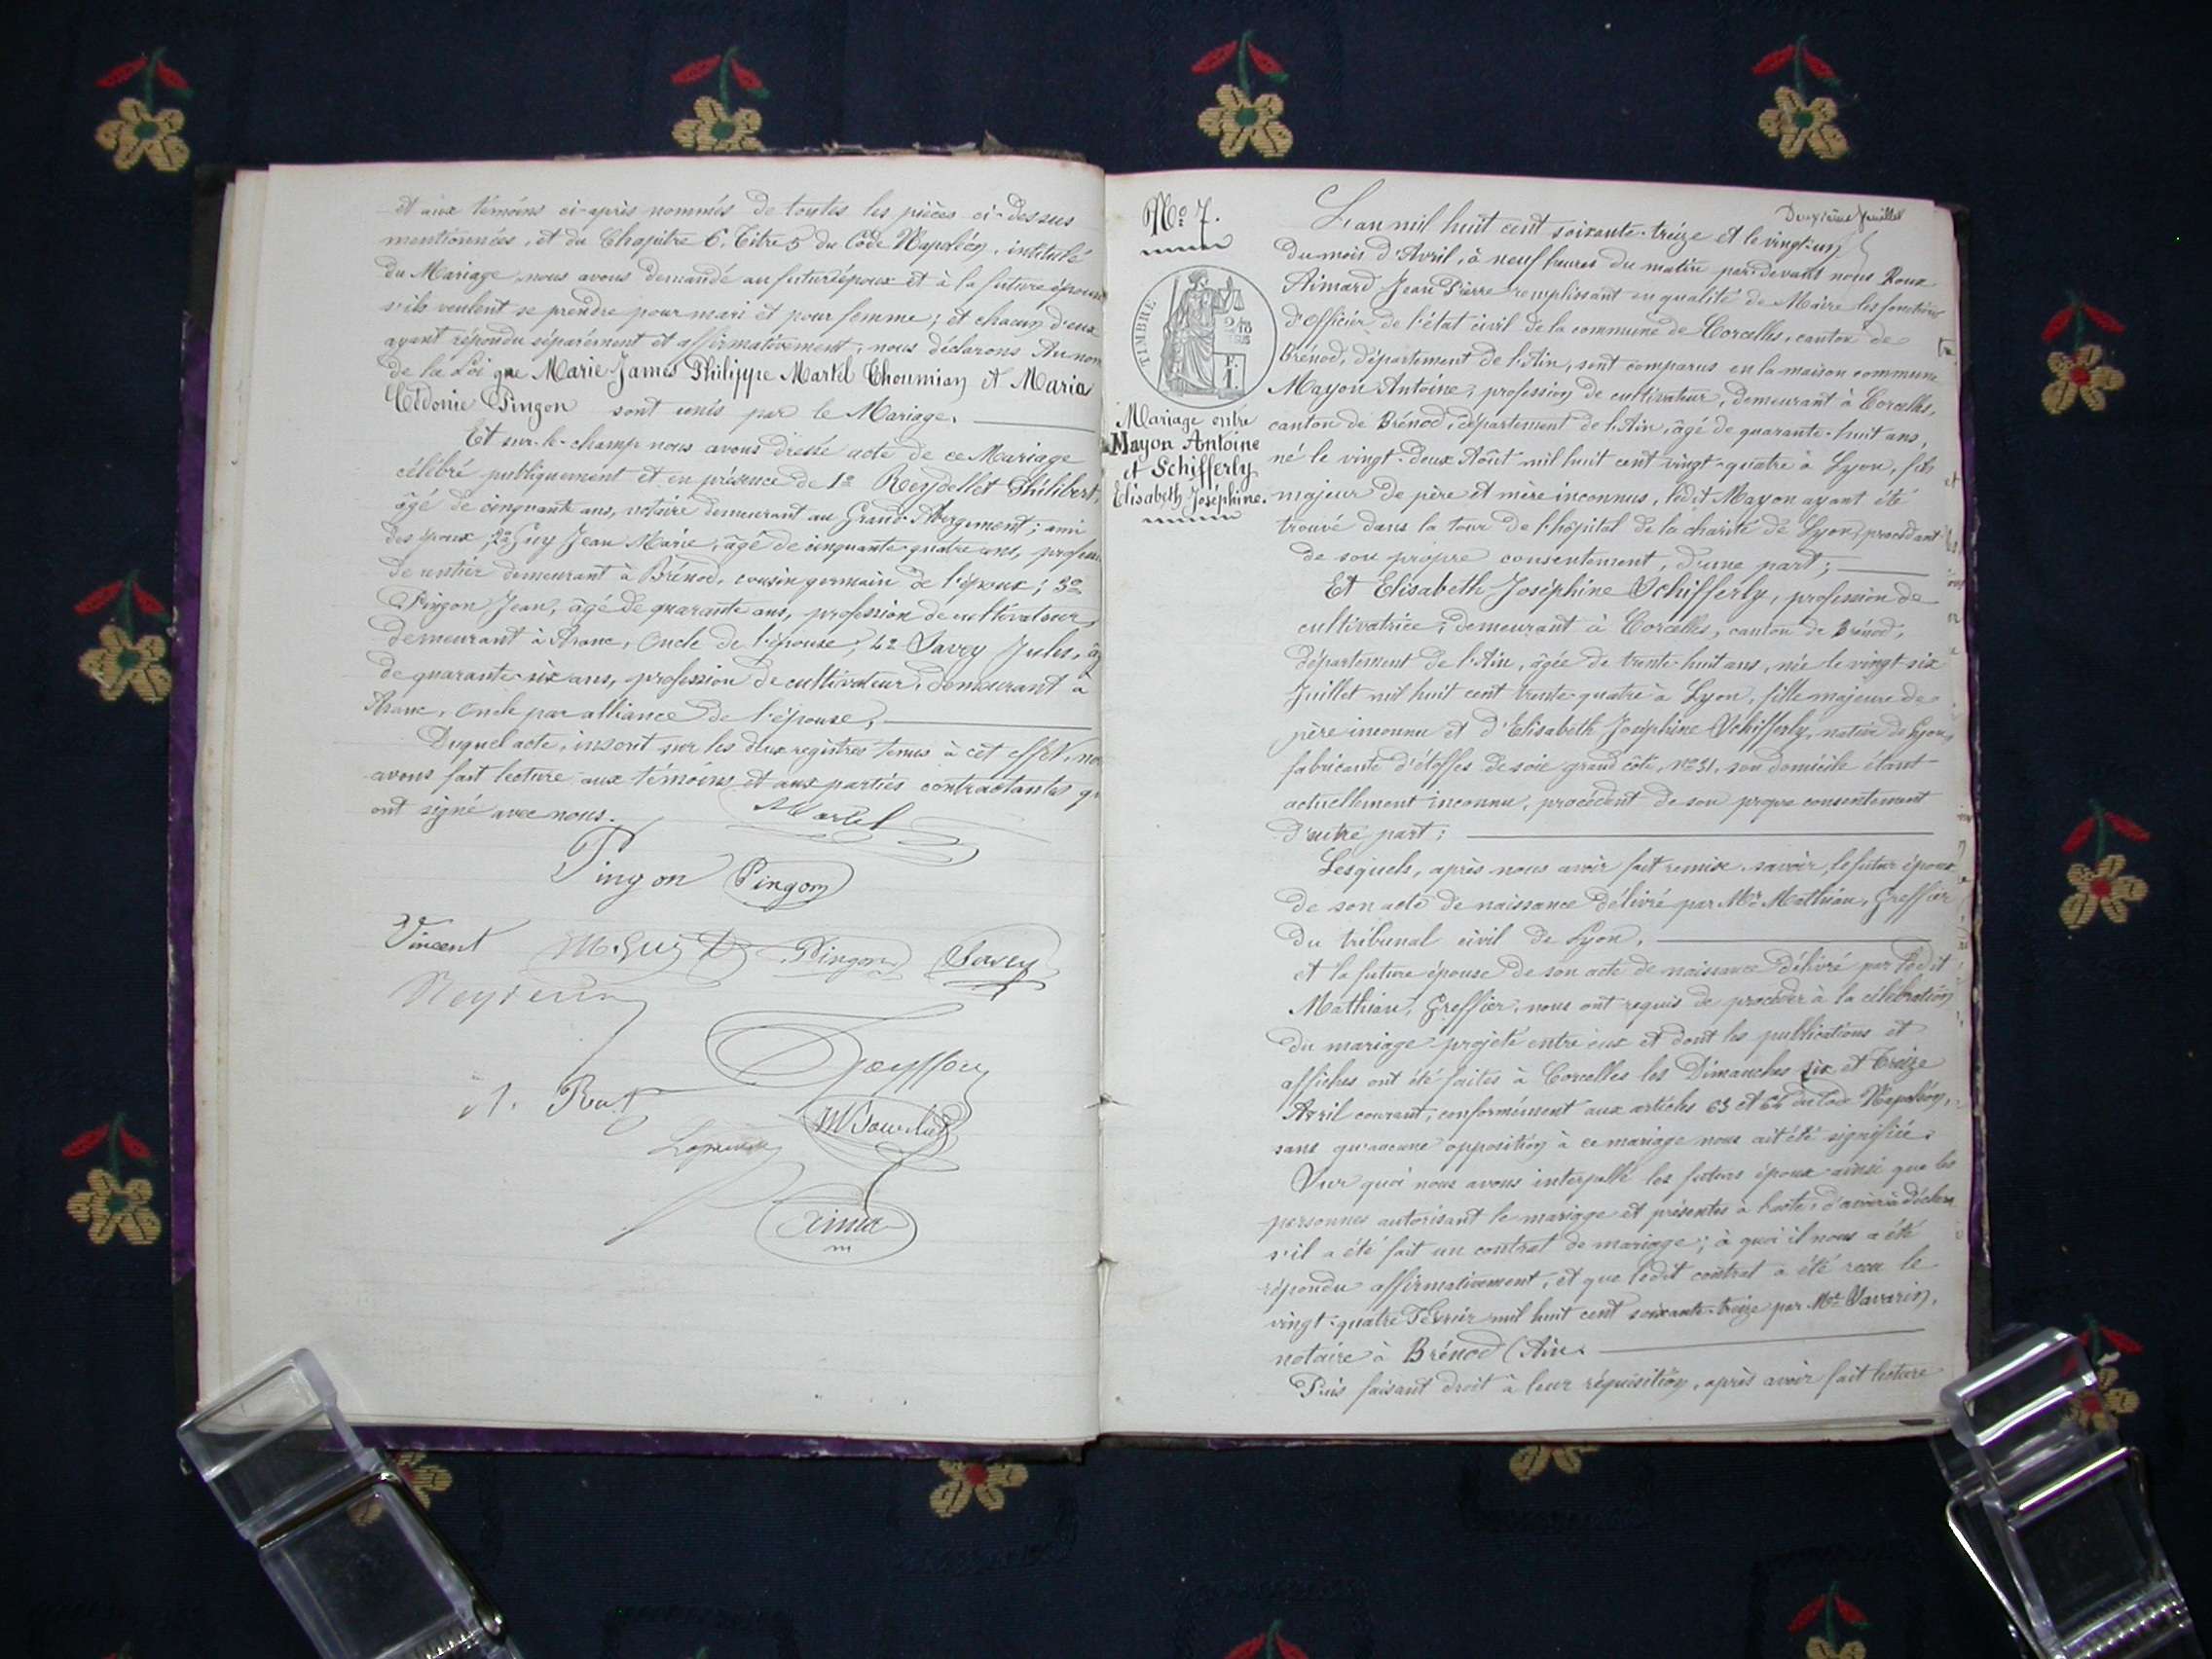 et aux témoins ci-après nommés de toutes les pièces ci-dessus
mentionnées, et du Chapitre 6, Titre 5 du Code Napoléon, intitulé
du Mariage, nous avons demandé au futur époux et à la future épouse
s'ils veulent se prendre pour mari et pour femme ; et chacun d'eux
ayant répondu séparément et affirmativement, nous déclarons Au nom
de la Loi que Marie James Philippe Martel Choumian et Maria
Pingon sont unis par le Mariage.
Et sur-le-champ nous avons dressé acte de ce Mariage
célébré publiquement et en présence de 1º Reydellet Philibert,
âgé de cinquante ans, notaire demeurant au Grand-Abergement ; ami
des époux, 2º Guy Jean Marie, âgé de cinquante-quatre ans, profession
de rentier demeurant à Brénod, cousin germain de l'époux ; 3º
Pingon Jean, âgé de quarante ans, profession de cultivateur
demeurant à Aranc, Oncle de l'épouse, 4º Savey Jules, âg
de quarante-six ans, profession de cultivateur, demeurant à
Aranc, Oncle par alliance de l'épouse,
Duquel acte, inscrit sur les deux registres tenus à cet effet, nou
avons fait lecture aux témoins et aux parties contractantes qu
ont signé avec nous.
Martel
Pingon Pingon
Vincent M. Guy Pingon Savey
A. Rat
Deuxième feuillet
Nº 7.
TIMBRE
Mariage entre
Mayon Antoine
et Schifferly
Elisabeth Joséphine.
L'an mil huit cent soixante-treize et le vingt-un
du mois d'Avril, à neuf heures du matin par-devant nous Roux
Aimard Jean Pierre remplissant en qualité de Maire les fonctions
d'Officier de l'état civil de la commune de Corcelles, canton de
Brénod, département de l'Ain, sont comparus en la maison commune
Mayon Antoine, profession de cultivateur, demeurant à Corcelles,
canton de Brénod, département de l'Ain, âgé de quarante-huit ans,
né le vingt-deux Août mil huit cent vingt-quatre à Lyon, fils
majeur de père et mère inconnus, ledit Mayon ayant été
trouvé dans la tour de l'hôpital de la charité de Lyon, procédant
de son propre consentement, d'une part ;
Et Elisabeth Joséphine Schifferly, profession de
cultivatrice, demeurant à Corcelles, canton de Brénod,
département de l'Ain, âgée de trente-huit ans, née le vingt-six
Juillet mil huit cent trente-quatre à Lyon, fille majeure de
père inconnu et d'Elisabeth Joséphine Schifferly, native de Lyon,
fabricante d'étoffes de soie grand côte, nº 31, son domicile étant
actuellement inconnu, procédent de son propre consentement
d'autre part ;
Lesquels, après nous avoir fait remise, savoir, le futur époux
de son acte de naissance délivré par Mr Mathian, Greffier
du tribunal civil de Lyon,
et la future épouse de son acte de naissance délivré par ledit
Mathian, Greffier, nous ont requis de procéder à la célébration
du mariage projeté entre eux et dont les publications et
affiches ont été faites à Corcelles les Dimanches six et Treize
Avril courant, conformément aux articles 63 et 64 du Code Napoléon,
sans qu'aucune opposition à ce mariage nous ait été signifiée.
Sur quoi nous avons interpellé les futurs époux ainsi que les
personnes autorisant le mariage et présentes à l'acte, d'avoir à déclarer
s'il a été fait un contrat de mariage ; à quoi il nous a été
répondu affirmativement, et que ledit contrat a été reçu le
vingt-quatre Février mil huit cent soixante-treize par Me Savarin,
notaire à Brénod (Ain.
Puis faisant droit à leur réquisition, après avoir fait lecture